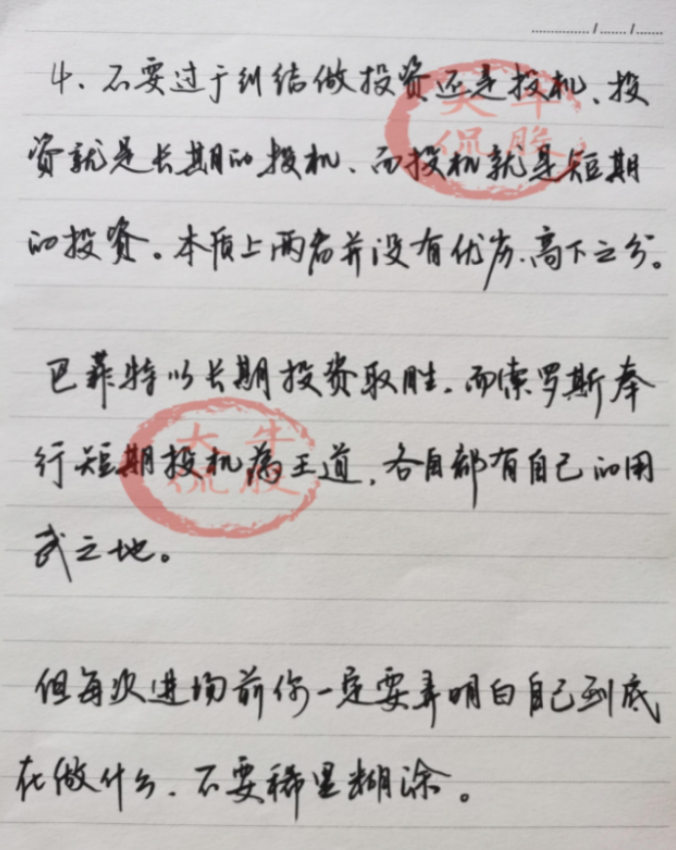 4、不要过于纠结做投资还是投机、投
资就是长期的投机、而投机就是短期
的投资。本质上两者并没有优劣、高下之分。
巴菲特以长期投资取胜，而索罗斯奉
行短期投机为王道，各自都有自己的用
武之地。
但每次进场前你一定要弄明白自己到底
在做什么、不要稀里糊涂。
大牛
侃股
大牛
侃股